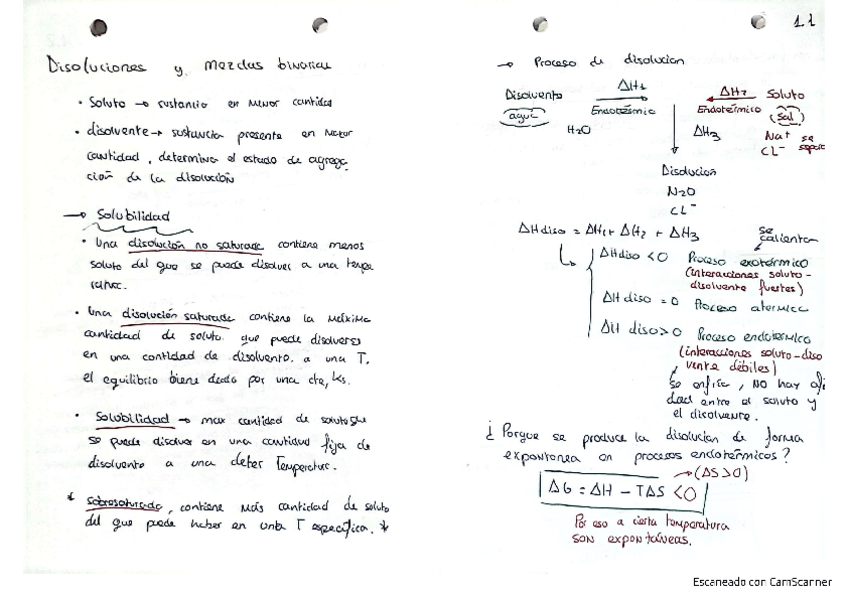 Disoluciones y mezclas binarias
• Soluto → sustancia en menor cantidad
• disolvente → sustancia presente en mayor
cantidad, determina el estado de agrega
ción de la disolución
→ Solubilidad
• Una disolución no saturada contiene menos
soluto del que se puede disolver a una tempe
ratura.
• Una disolución saturada contiene la máxima
cantidad de soluto que puede disolverse
en una cantidad de disolvente a una T.
el equilibrio biene dado por una cte, Ks.
• Solubilidad → max cantidad de soluto que
se puede disolver en una cantidad fija de
disolvente a una deter Temperatur.
* Sobresaturada, contiene más cantidad de soluto
del que puede haber en una T específica. *
1.1
→ Proceso de disolucion
Disolvente ΔH1 ΔH2 Soluto
agua Endotérmico Endotérmico (sal)
H2O ΔH3 Na+ se
Cl- separa
Disolucion
N2O
CL-
ΔHdiso = ΔH1 + ΔH2 + ΔH3
se
calientan
ΔHdiso < 0 Proceso exotérmico
(interacciones soluto-
disolvente fuertes)
ΔH diso = 0 Proceso atermico
ΔH diso > 0 Proceso endotérmico
(interacciones soluto-diso
vente débiles)
Se enfria, NO hay afi
dad entre el soluto y
el disolvente.
¿Porque se produce la disolucion de forma
expontanea en procesos endotérmicos?
ΔG = ΔH - TΔS < 0 → (ΔS > 0)
Por eso a cierta temperatura
son expontáneas.
Escaneado con CamScanner